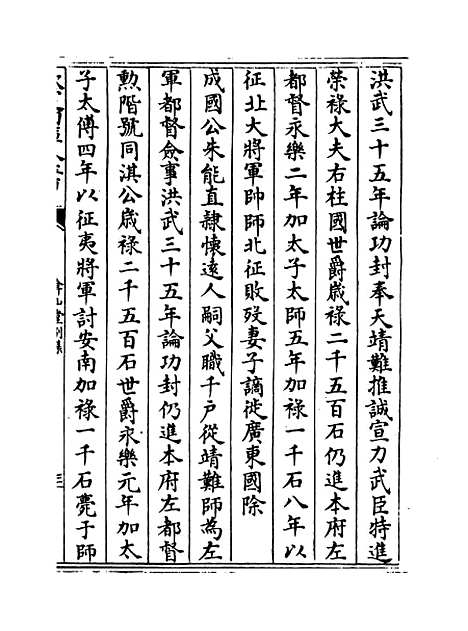 洪武三十五年論功封奉天靖難推誠宣力武臣特進
榮祿大夫右柱國世爵歲祿二千五百石仍進本府左
都督永樂二年加太子太師五年加祿一千石八年以
征北大將軍帥師北征敗歿妻子謫徙廣東國除
成國公朱能直隸懷遠人嗣父職千戶從靖難師為左
軍都督僉事洪武三十五年論功封仍進本府左都督
勲階號同淇公歲祿二千五百石世爵永樂元年加太
子太傅四年以征夷將軍討安南加祿一千石薨于師
弇山堂別集
三